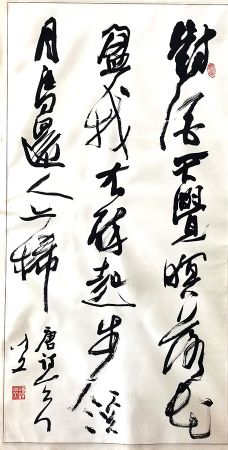 對酒不覺暝落花
盈我衣醉起步溪
月鳥還人亦稀
唐詩一首